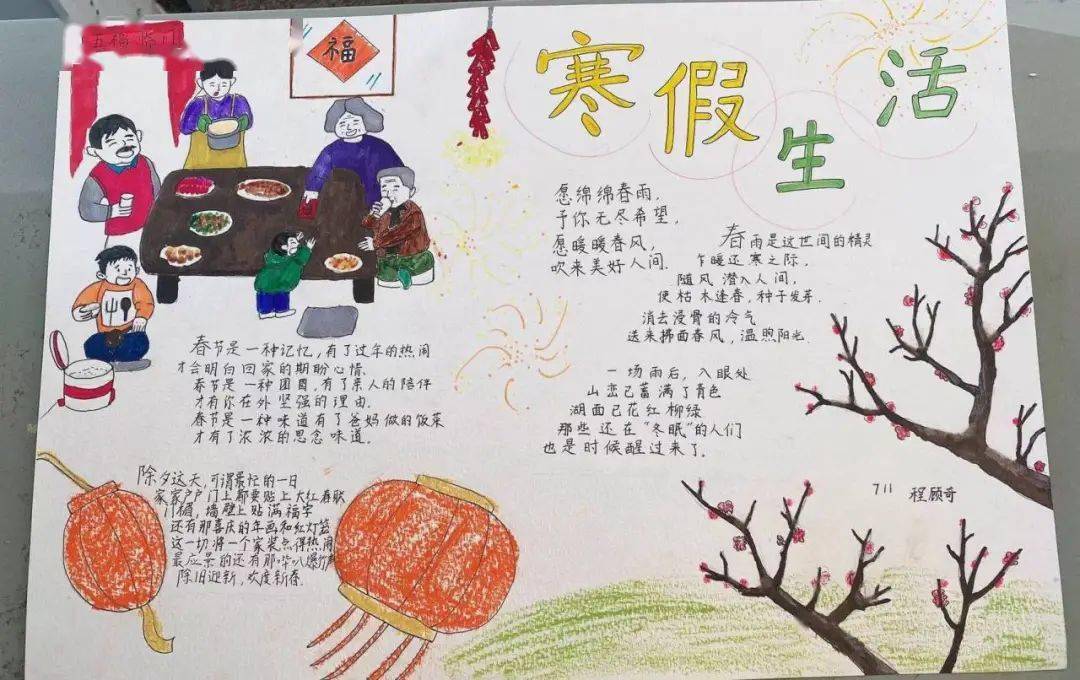 五福临门
福
寒假生活
愿绵绵春雨，
予你无尽希望，
愿暖暖春风，
吹来美好人间.
春雨是这世间的精灵
乍暖还寒之际.
随风潜入人间，
使枯木逢春，种子发芽.
消去浸骨的冷气
送来拂面春风，温煦阳光.
一场雨后，入眼处
山峦已蓄满了青色
湖面已花红柳绿
那些还在"冬眠"的人们
也是时候醒过来了.
春节是一种记忆，有了过年的热闹
才会明白回家的期盼心情.
春节是一种团圆，有了亲人的陪伴
才有你在外坚强的理由.
春节是一种味道有了爸妈做的饭菜
才有了浓浓的思念味道.
除夕这天，可谓最忙的一日
家家户户门上都要贴上大红春联
门楣，墙壁上贴满福字
还有那喜庆的年画和红灯笼
这一切将一个家装点得热闹
最应景的还有那噼叭爆竹
除旧迎新，欢度新春.
711 程顾奇